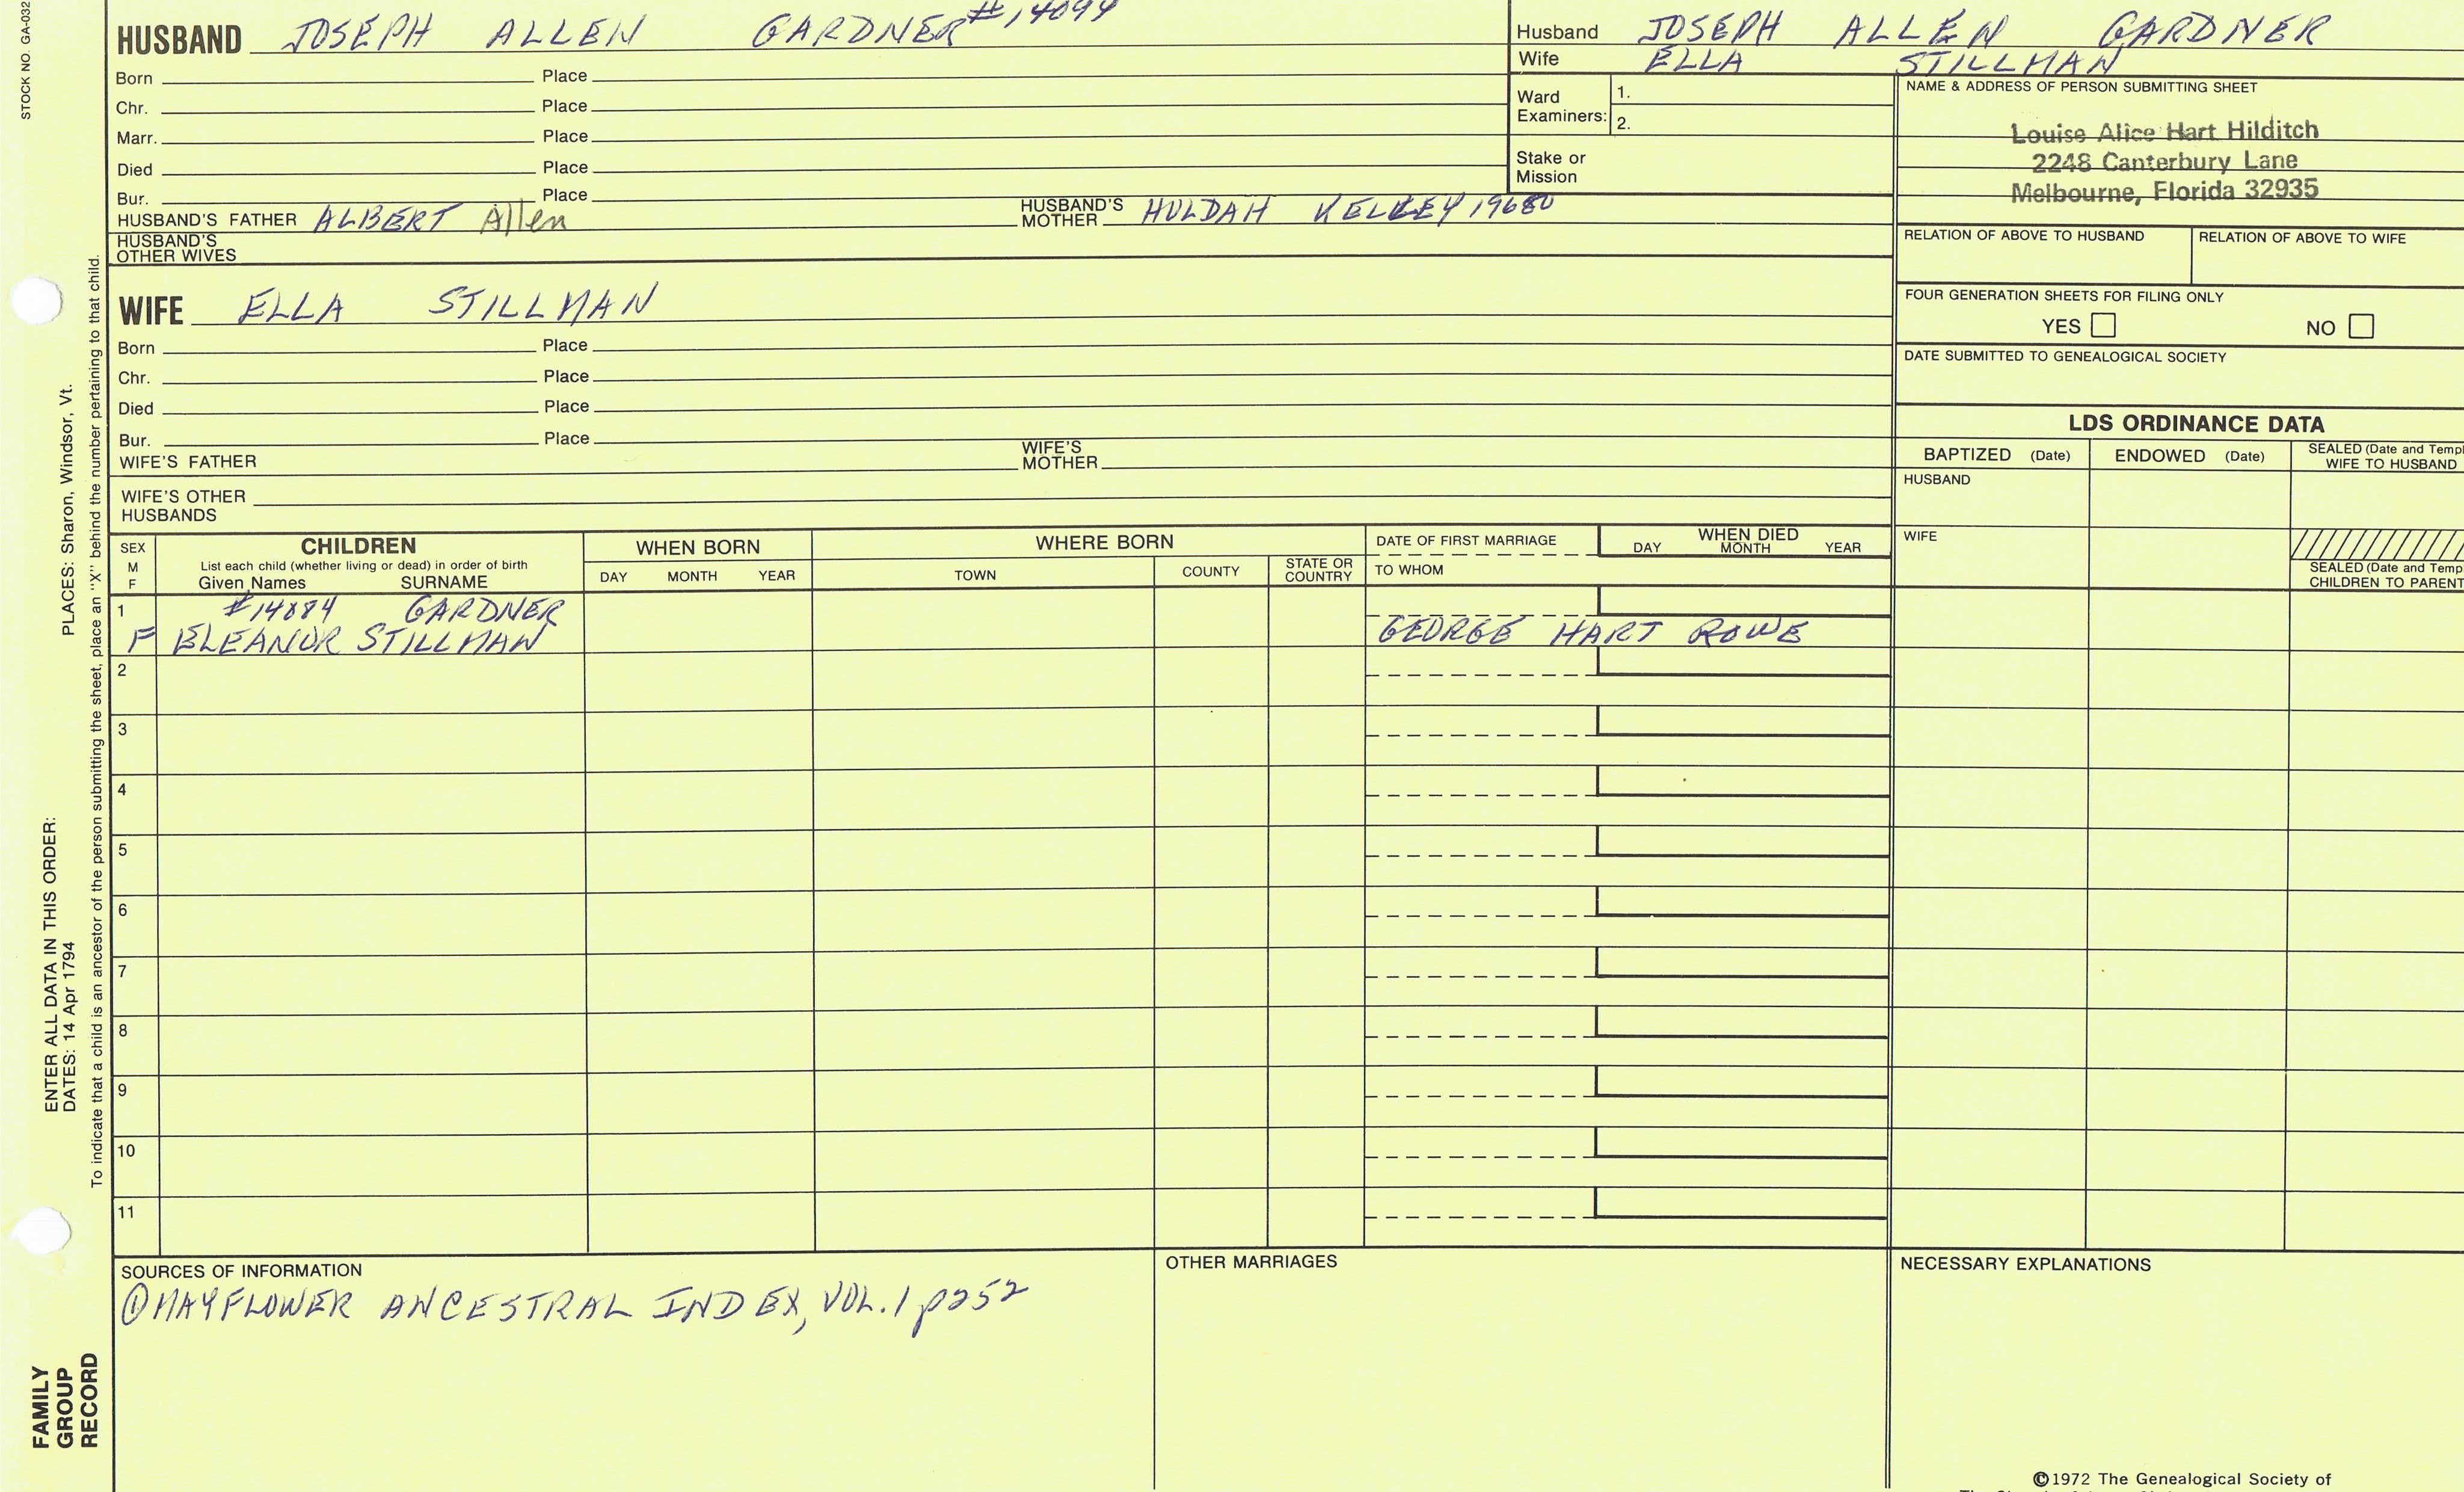 STOCK NO. GA-032
PLACES: Sharon, Windsor, Vt.
ENTER ALL DATA IN THIS ORDER:
DATES: 14 Apr 1794
To indicate that a child is an ancestor of the person submitting the sheet, place an "X" behind the number pertaining to that child.
FAMILY
GROUP
RECORD
HUSBAND JOSEPH ALLEN GARDNER #14094
Born Place
Chr. Place
Marr. Place
Died Place
Bur. Place
HUSBAND'S FATHER ALBERT Allen HUSBAND'S MOTHER HULDAH KELLEY 19680
HUSBAND'S
OTHER WIVES
WIFE ELLA STILLMAN
Born Place
Chr. Place
Died Place
Bur. Place
WIFE'S FATHER WIFE'S MOTHER
WIFE'S OTHER
HUSBANDS
Husband JOSEPH ALLEN GARDNER
Wife ELLA STILLMAN
Ward
Examiners:
1.
2.
Stake or
Mission
NAME & ADDRESS OF PERSON SUBMITTING SHEET
Louise Alice Hart Hilditch
2248 Canterbury Lane
Melbourne, Florida 32935
RELATION OF ABOVE TO HUSBAND RELATION OF ABOVE TO WIFE
FOUR GENERATION SHEETS FOR FILING ONLY
YES NO
DATE SUBMITTED TO GENEALOGICAL SOCIETY
LDS ORDINANCE DATA
BAPTIZED (Date) ENDOWED (Date) SEALED (Date and Templ
WIFE TO HUSBAND
HUSBAND
WIFE
SEALED (Date and Temp
CHILDREN TO PARENT
SEX
M
F
CHILDREN
List each child (whether living or dead) in order of birth
Given Names SURNAME
WHEN BORN
DAY MONTH YEAR
WHERE BORN
TOWN COUNTY STATE OR COUNTRY
DATE OF FIRST MARRIAGE
TO WHOM
WHEN DIED
DAY MONTH YEAR
1 #14084 GARDNER
F ELEANOR STILLMAN GEORGE HART ROWE
2
3
4
5
6
7
8
9
10
11
SOURCES OF INFORMATION
① MAYFLOWER ANCESTRAL INDEX, VOL. 1 p252
OTHER MARRIAGES
NECESSARY EXPLANATIONS
©1972 The Genealogical Society of